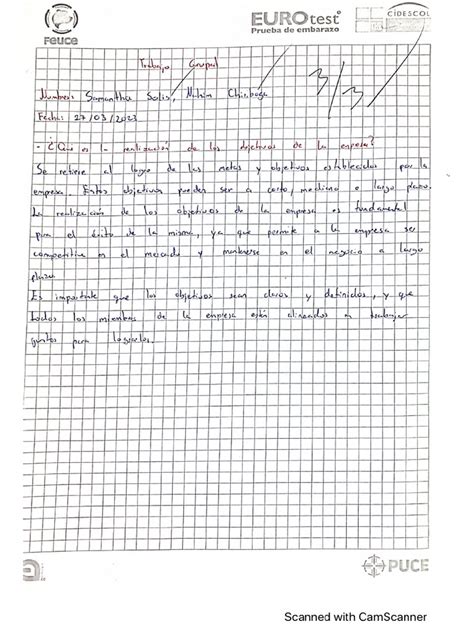 Feuce
EUROtest
Prueba de embarazo
CIDESCOL
Trabajo Grupal
3/3
Nombres: Samantha Solis, Chiriboga
Fecha: 27/03/2023
- ¿Qué es la realización de los objetivos de la empresa?
Se refiere al logro de las metas y objetivos establecidos por la
empresa. Estos objetivos pueden ser a corto, mediano o largo plazo.
La realización de los objetivos de la empresa es fundamental
para el éxito de la misma, ya que permite a la empresa ser
competitiva en el mercado y mantenerse en el negocio a largo
plazo.
Es importante que los objetivos sean claros y definidos, y que
todos los miembros de la empresa estén alineados a trabajar
juntos para lograrlos.
PUCE
Scanned with CamScanner